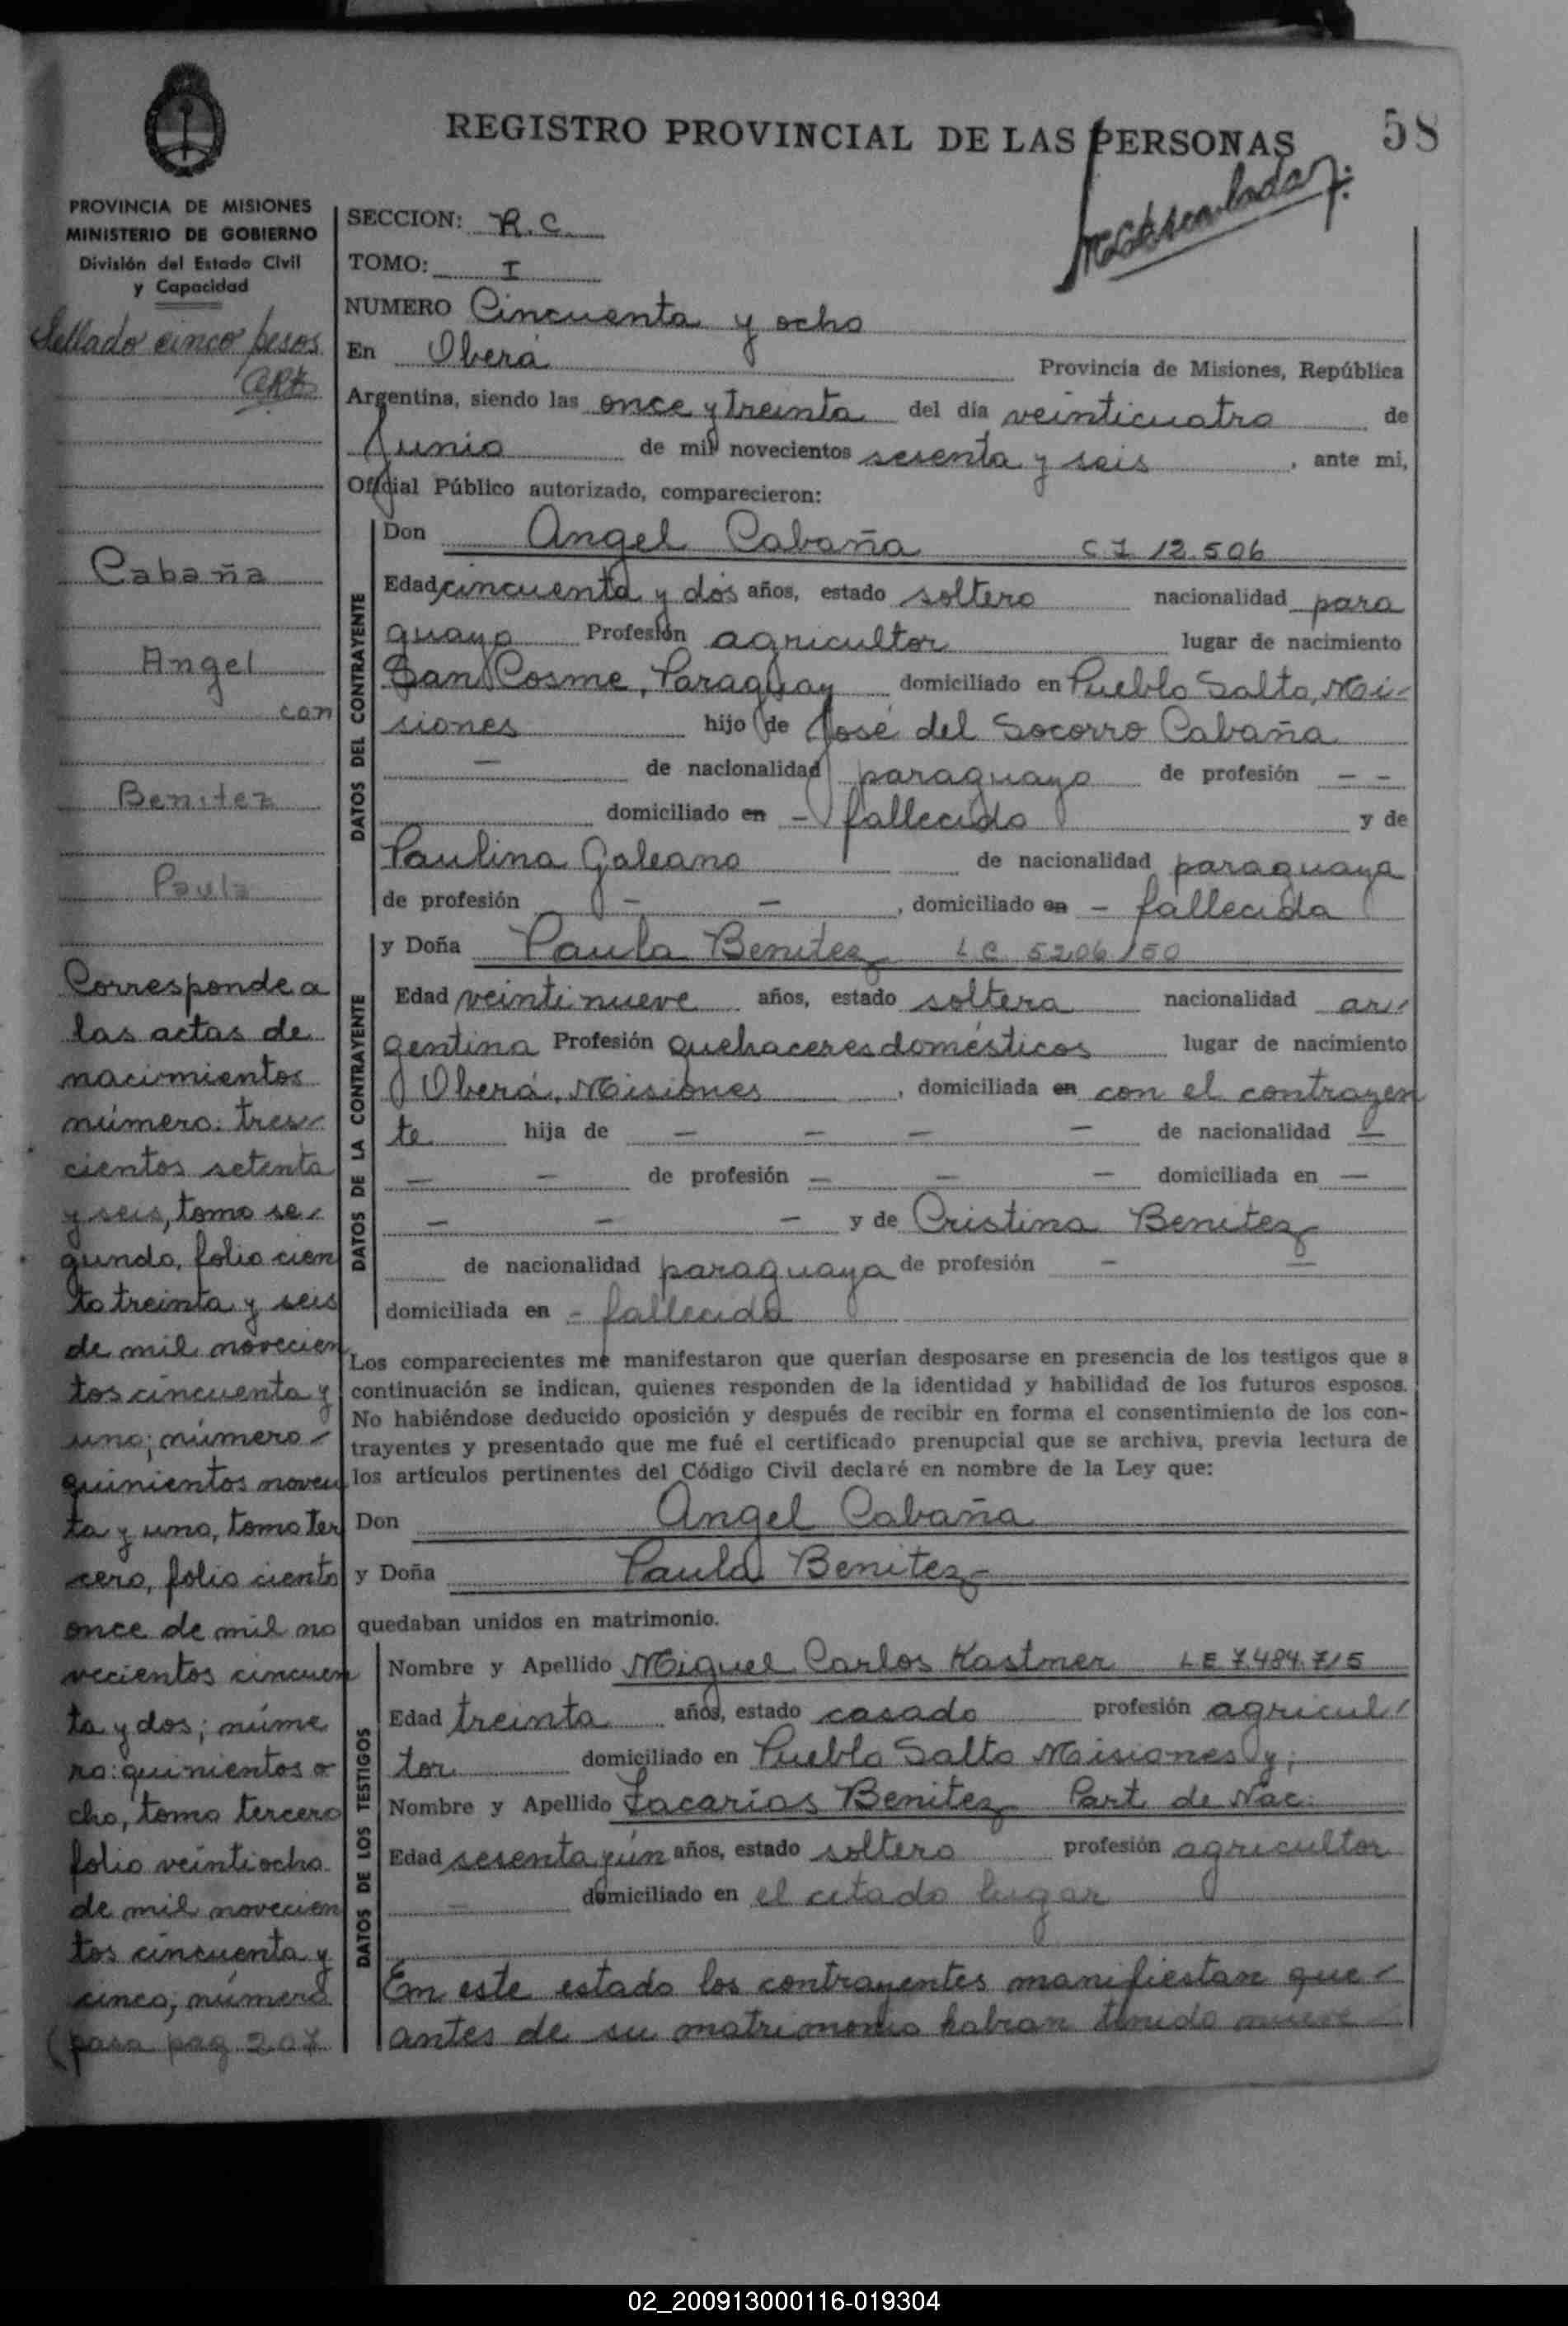 REGISTRO PROVINCIAL DE LAS PERSONAS
58
PROVINCIA DE MISIONES
MINISTERIO DE GOBIERNO
División del Estado Civil
y Capacidad
Sellado cinco pesos
Cabaña
Angel
con
Benitez
Paula
Corresponde a
las actas de
nacimientos
número: tres-
cientos setenta
y seis, tomo se-
gundo, folio cien
to treinta y seis
de mil novecien
tos cincuenta y
uno; número -
quinientos noven
ta y uno, tomo ter
cero, folio ciento
once de mil no
vecientos cincuen
ta y dos; núme
ro: quinientos o
cho, tomo tercero
folio veintiocho
de mil novecien
tos cincuenta y
cinco, número
(pasa pag 207
SECCION: R.C.
TOMO: I
NUMERO Cincuenta y ocho
En Oberá Provincia de Misiones, República
Argentina, siendo las once y treinta del día veinticuatro de
Junio de mil novecientos sesenta y seis, ante mi,
Oficial Público autorizado, comparecieron:
DATOS DEL CONTRAYENTE
Don Angel Cabaña C I 12.506
Edad cincuenta y dos años, estado soltero nacionalidad para
guayo Profesión agricultor lugar de nacimiento
San Cosme, Paraguay domiciliado en Pueblo Salto, Mi-
siones hijo de José del Socorro Cabaña
— de nacionalidad paraguayo de profesión — —
domiciliado en - fallecido y de
Paulina Galeano de nacionalidad paraguaya
de profesión — —, domiciliado en - fallecida
DATOS DE LA CONTRAYENTE
y Doña Paula Benitez L C 5206150
Edad veintinueve años, estado soltera nacionalidad ar-
gentina Profesión quehaceres domésticos lugar de nacimiento
Oberá, Misiones, domiciliada en con el contrayen
te hija de — — — — de nacionalidad —
— — de profesión — — — domiciliada en —
— — — y de Cristina Benitez
de nacionalidad paraguaya de profesión — —
domiciliada en - fallecida
Los comparecientes me manifestaron que querían desposarse en presencia de los testigos que a
continuación se indican, quienes responden de la identidad y habilidad de los futuros esposos.
No habiéndose deducido oposición y después de recibir en forma el consentimiento de los con-
trayentes y presentado que me fué el certificado prenupcial que se archiva, previa lectura de
los artículos pertinentes del Código Civil declaré en nombre de la Ley que:
Don Angel Cabaña
y Doña Paula Benitez-
quedaban unidos en matrimonio.
DATOS DE LOS TESTIGOS
Nombre y Apellido Miguel Carlos Kastner L E 7.484.715
Edad treinta años, estado casado profesión agricul-
tor domiciliado en Pueblo Salto Misiones y;
Nombre y Apellido Zacarías Benitez Part. de Nac.
Edad sesenta y ún años, estado soltero profesión agricultor
— domiciliado en el citado lugar
En este estado los contrayentes manifiestan que -
antes de su matrimonio habian tenido nueve -
02_200913000116-019304